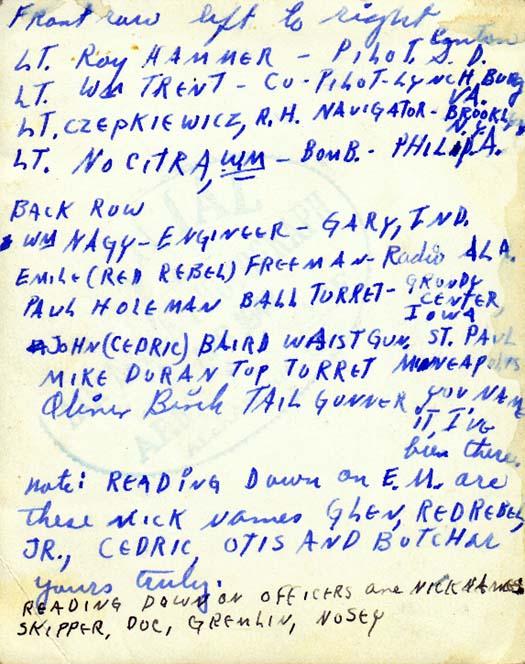 Front row left to right
LT. ROY HAMMER - PILOT. Canton S. D.
LT. WM TRENT - CO-PILOT-LYNCHBURG VA.
LT. CZEPKIEWICZ, R.H. NAVIGATOR - BROOKLYN N.Y.
LT. NOCITRA, WM - BOMB. - PHIL. P.A.
BACK ROW
WM NAGY - ENGINEER - GARY, IND.
EMILE (RED REBEL) FREEMAN - Radio ALA.
PAUL HOLEMAN BALL TURRET - GRUNDY CENTER, IOWA
JOHN (CEDRIC) BAIRD WAIST GUN, ST. PAUL
MIKE DURAN TOP TURRET MINNEAPOLIS
Oliver Birch TAIL GUNNER YOU NAME
IT I'VE
bien there.
note: READING Down on E.M. are
these NICK NAMES GLEN, RED REBEL,
JR., CEDRIC, OTIS AND BUTCHAR
yours truly.
READING DOWN ON OFFICERS are NICKNAMES
SKIPPER, DOC, GREMLIN, NOSEY